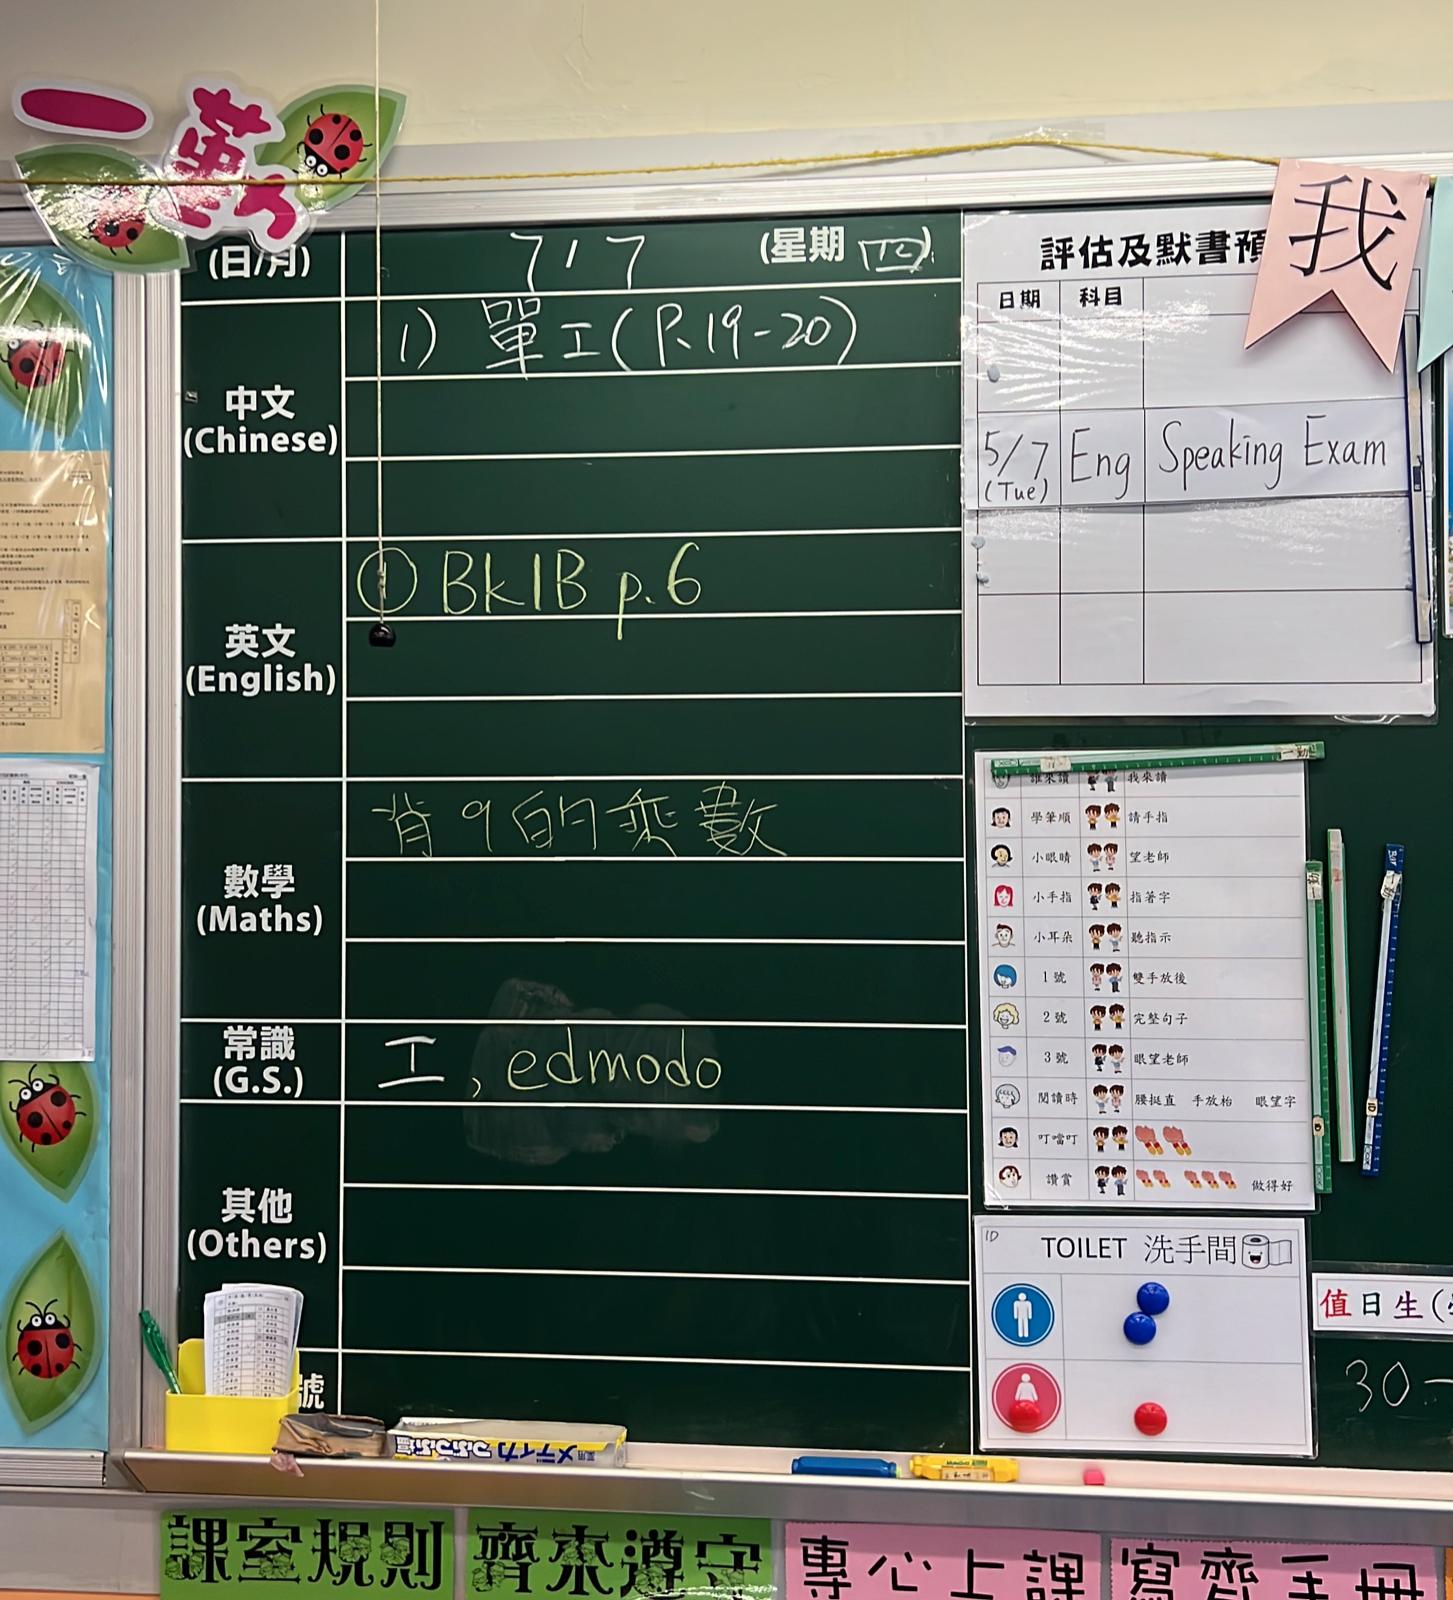 一勤
(日/月) 7/7 (星期四)
中文
(Chinese)
1) 單工(P.19-20)
英文
(English)
① Bk1B p.6
數學
(Maths)
背9的乘數
常識
(G.S.)
工, edmodo
其他
(Others)
號
評估及默書預
日期 科目
5/7 (Tue) Eng Speaking Exam
我
一勤
誰來讀 我來讀
學筆順 請手指
小眼睛 望老師
小手指 指著字
小耳朵 聽指示
1號 雙手放後
2號 完整句子
3號 眼望老師
閱讀時 腰挺直 手放枱 眼望字
叮噹叮
讚賞 做得好
1D
TOILET 洗手間
值日生(
30-
メディカつぶつぶ塩
課室規則
齊來遵守
專心上課
寫齊手冊